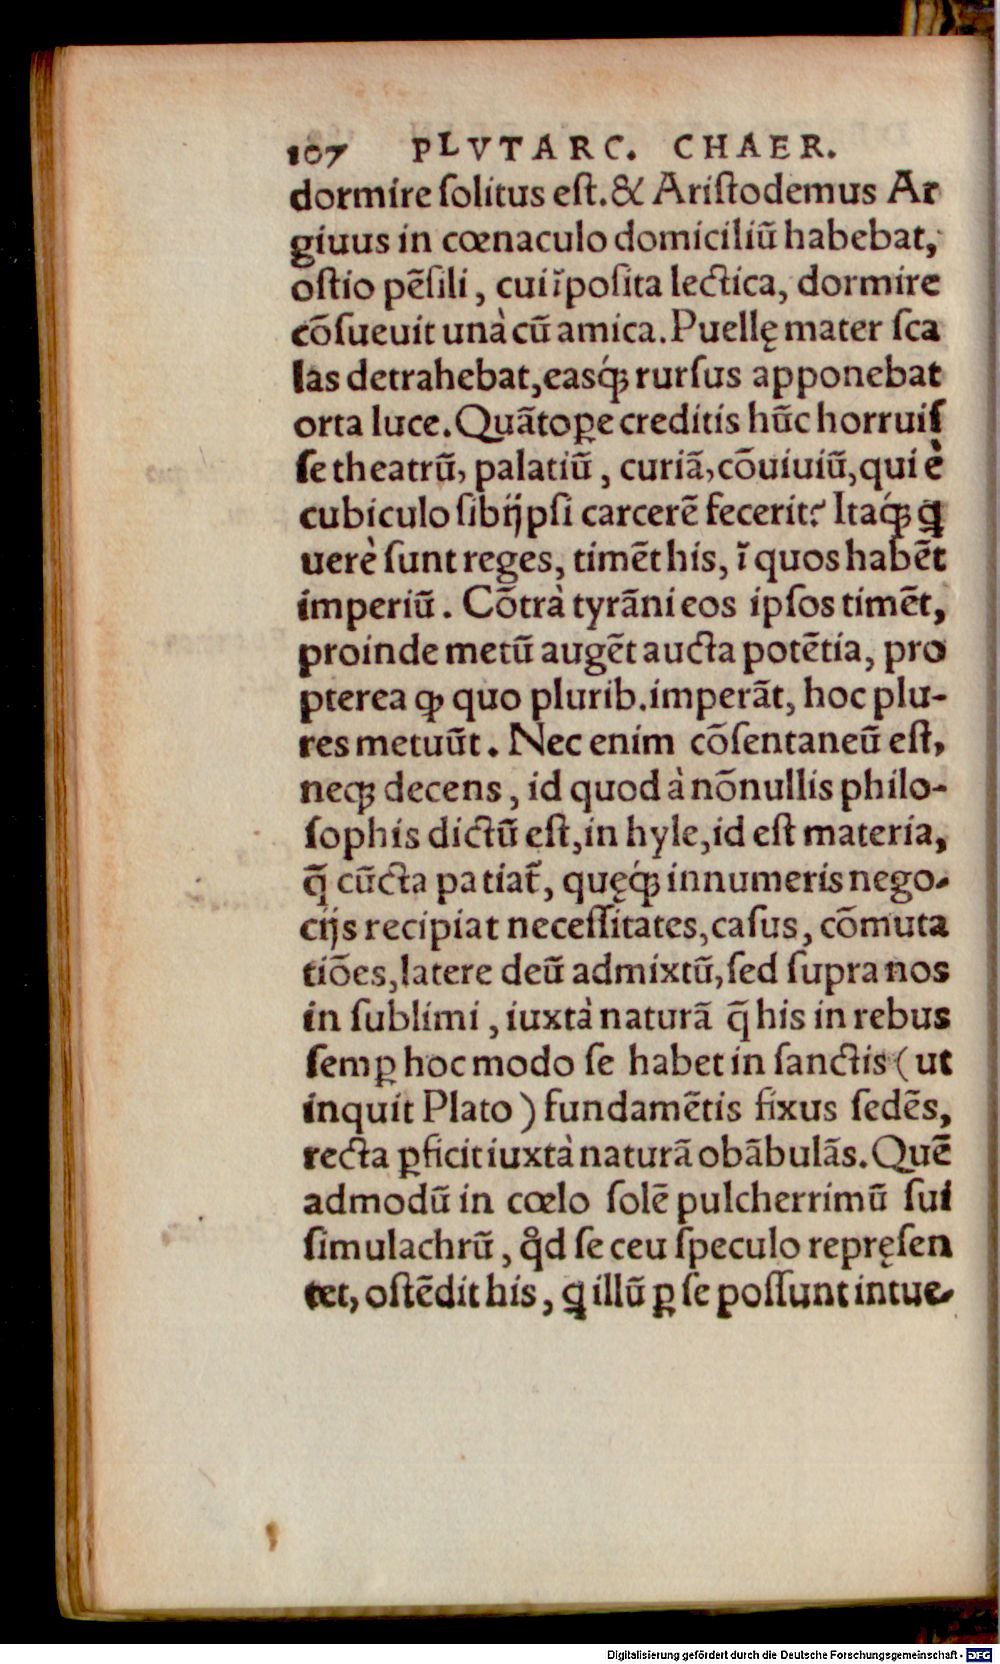 107 PLVTARC. CHAER.
dormire ſolitus eſt. & Ariſtodemus Ar
giuus in cœnaculo domiciliũ habebat,
oſtio pẽſili, cui ĩpoſita lectica, dormire
cõſueuit unà cũ amica. Puellę mater ſca
las detrahebat, easq́; rurſus apponebat
orta luce. Quãtoꝑe creditis hũc horruiſ
ſe theatrũ, palatiũ, curiã, cõuiuiũ, qui è
cubiculo ſibijpſi carcerẽ fecerit? Itaq́; ꝗ
uerè ſunt reges, timẽt his, ĩ quos habẽt
imperiũ. Cõtrà tyrãni eos ipſos timẽt,
proinde metũ augẽt aucta potẽtia, pro
pterea ꝙ quo plurib. imperãt, hoc plu-
res metuũt. Nec enim cõſentaneũ eſt,
neq; decens, id quod à nõnullis philo-
ſophis dictũ eſt, in hyle, id eſt materia,
q̃ cũcta patiat̃, quęq́; innumeris nego-
cijs recipiat neceſſitates, caſus, cõmuta
tiões, latere deũ admixtũ, ſed ſupra nos
in ſublimi, iuxtà naturã q̃ his in rebus
ſemꝑ hoc modo ſe habet in ſanctis (ut
inquit Plato) fundamẽtis fixus ſedẽs,
recta ꝑficit iuxtà naturã obãbulãs. Quẽ
admodũ in cœlo ſolẽ pulcherrimũ ſui
ſimulachrũ, qd̊ ſe ceu ſpeculo repręſen
tet, oſtẽdit his, ꝗ illũ ꝑ ſe poſſunt intue-
Digitalisierung gefördert durch die Deutsche Forschungsgemeinschaft - DFG